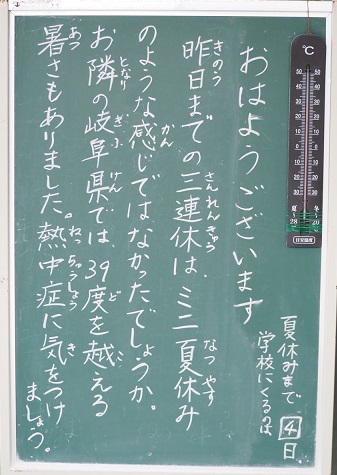 おはようございます
昨日までの三連休は、ミニ夏休み
のような感じではなかったでしょうか。
お隣の岐阜県では、39度を越える
暑さもありました。熱中症に気をつけ
ましょう。
夏休みまで
学校にくるのは
4日
きのう
さんれんきゅう
なつやす
かん
となり
ぎふ
けん
ど
こ
あつ
ねっちゅうしょう
き
℃
50 50
40 40
30 30
20 20
10 10
0 0
10 10
20 20
30 30
夏 冬
28 20
目安温度